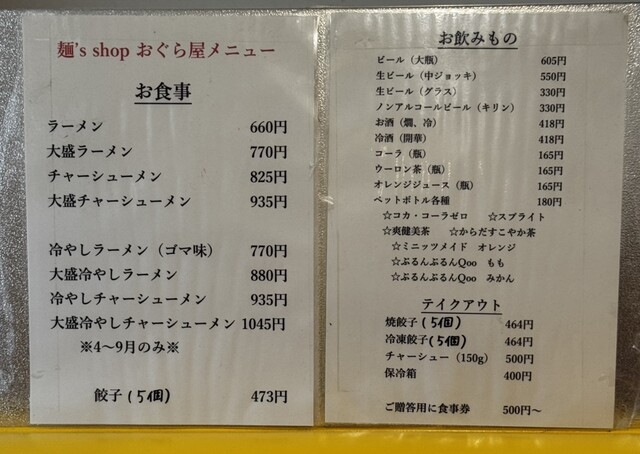 麺's shop おぐら屋メニュー
お食事
ラーメン 660円
大盛ラーメン 770円
チャーシューメン 825円
大盛チャーシューメン 935円
冷やしラーメン（ゴマ味） 770円
大盛冷やしラーメン 880円
冷やしチャーシューメン 935円
大盛冷やしチャーシューメン 1045円
※4～9月のみ※
餃子（5個） 473円
お飲みもの
ビール（大瓶） 605円
生ビール（中ジョッキ） 550円
生ビール（グラス） 330円
ノンアルコールビール（キリン） 330円
お酒（燗、冷） 418円
冷酒（開華） 418円
コーラ（瓶） 165円
ウーロン茶（瓶） 165円
オレンジジュース（瓶） 165円
ペットボトル各種 180円
☆コカ・コーラゼロ ☆スプライト
☆爽健美茶 ☆からだすこやか茶
☆ミニッツメイド オレンジ
☆ぷるんぷるんQoo もも
☆ぷるんぷるんQoo みかん
テイクアウト
焼餃子（5個） 464円
冷凍餃子（5個） 464円
チャーシュー（150g） 500円
保冷箱 400円
ご贈答用に食事券 500円～